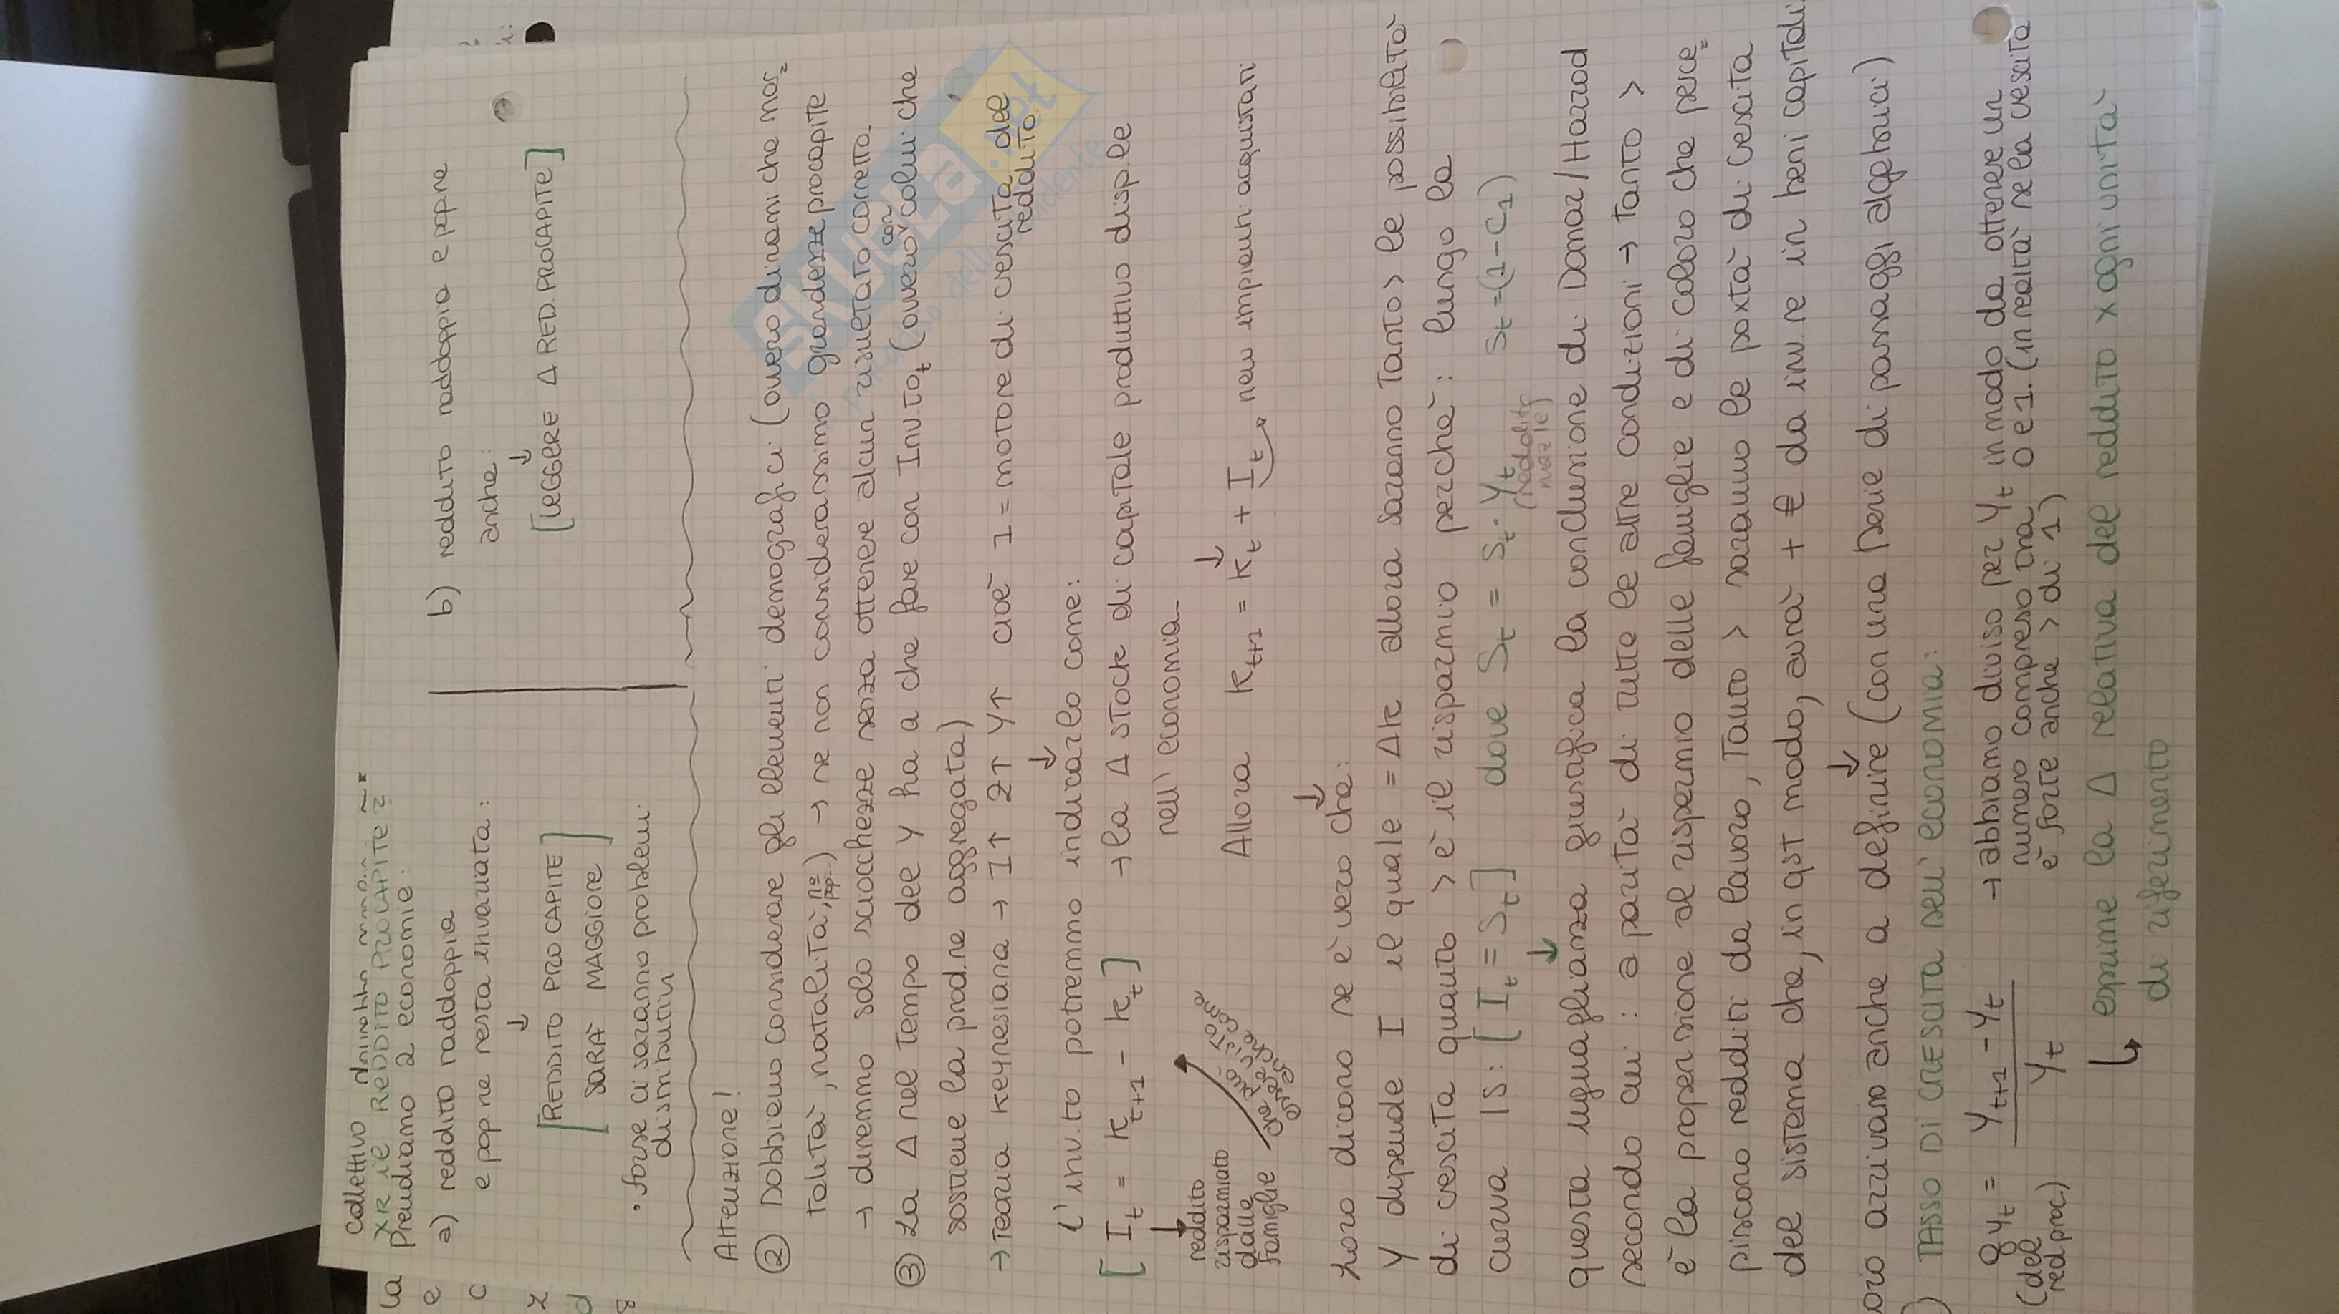 Collettivo
X R IL REDDITO PROCAPITE?
Prendiamo 2 economie:
a) reddito raddoppia
e pop ne resta invariata:
↓
[REDDITO PRO CAPITE
SARA' MAGGIORE]
• forse ci saranno problemi
distributivi
b) reddito raddoppia e pop ne
anche:
↓
[LEGGERE Δ RED. PROCAPITE]
Attenzione!
② Dobbiamo considerare gli elementi demografici (ovvero dinamiche mor=
talità, natalità, n° pop...) → se non considerassimo grandezze procapite
→ diremmo solo sciocchezze senza ottenere alcun risultato corretto.
③ La Δ nel tempo del Y ha a che fare con Inv.to t (ovvero con colui che
sostiene la prod.ne aggregata)
→ Teoria keynesiana → I↑ Z↑ Y↑ cioè I = motore di crescita del
reddito.
↓
L'inv.to potremmo indicarlo come:
[I t = K t+1 - K t] → la Δ stock di capitale produttivo disp.le
nell'economia.
↓
reddito
risparmiato
dalle
famiglie
Allora K t+1 = K t + I t → new impieghi acquistati
↓
Loro dicono se è vero che:
Y dipende I il quale = Δk allora saranno tanto > le possibilità
di crescita quanto > è il risparmio perchè: lungo la
curva IS: [I t = S t] dove S t = s t · Y t s t = (1 - c1)
(reddito
naz.le)
↓
questa uguaglianza giustifica la conclusione di Domar/Harrod
secondo cui: a parità di tutte le altre condizioni → tanto >
è la propensione al risparmio delle famiglie e di coloro che perce=
piscono redditi da lavoro, tanto > saranno le poxtà di crescita
del sistema che, in qst modo, avrà + € da inv.re in beni capitali
↓
Loro arrivano anche a definire (con una serie di passaggi algebrici)
) TASSO DI CRESCITA DELL'ECONOMIA:
g y t = (Y t+1 - Y t) / Y t → abbiamo diviso per Y t in modo da ottenere un
(del
red. proc.)
numero compreso tra 0 e 1. (in realtà se la crescita
è forte anche > di 1)
↳ esprime la Δ relativa del reddito x ogni unità
di riferimento
SKUOLA.net